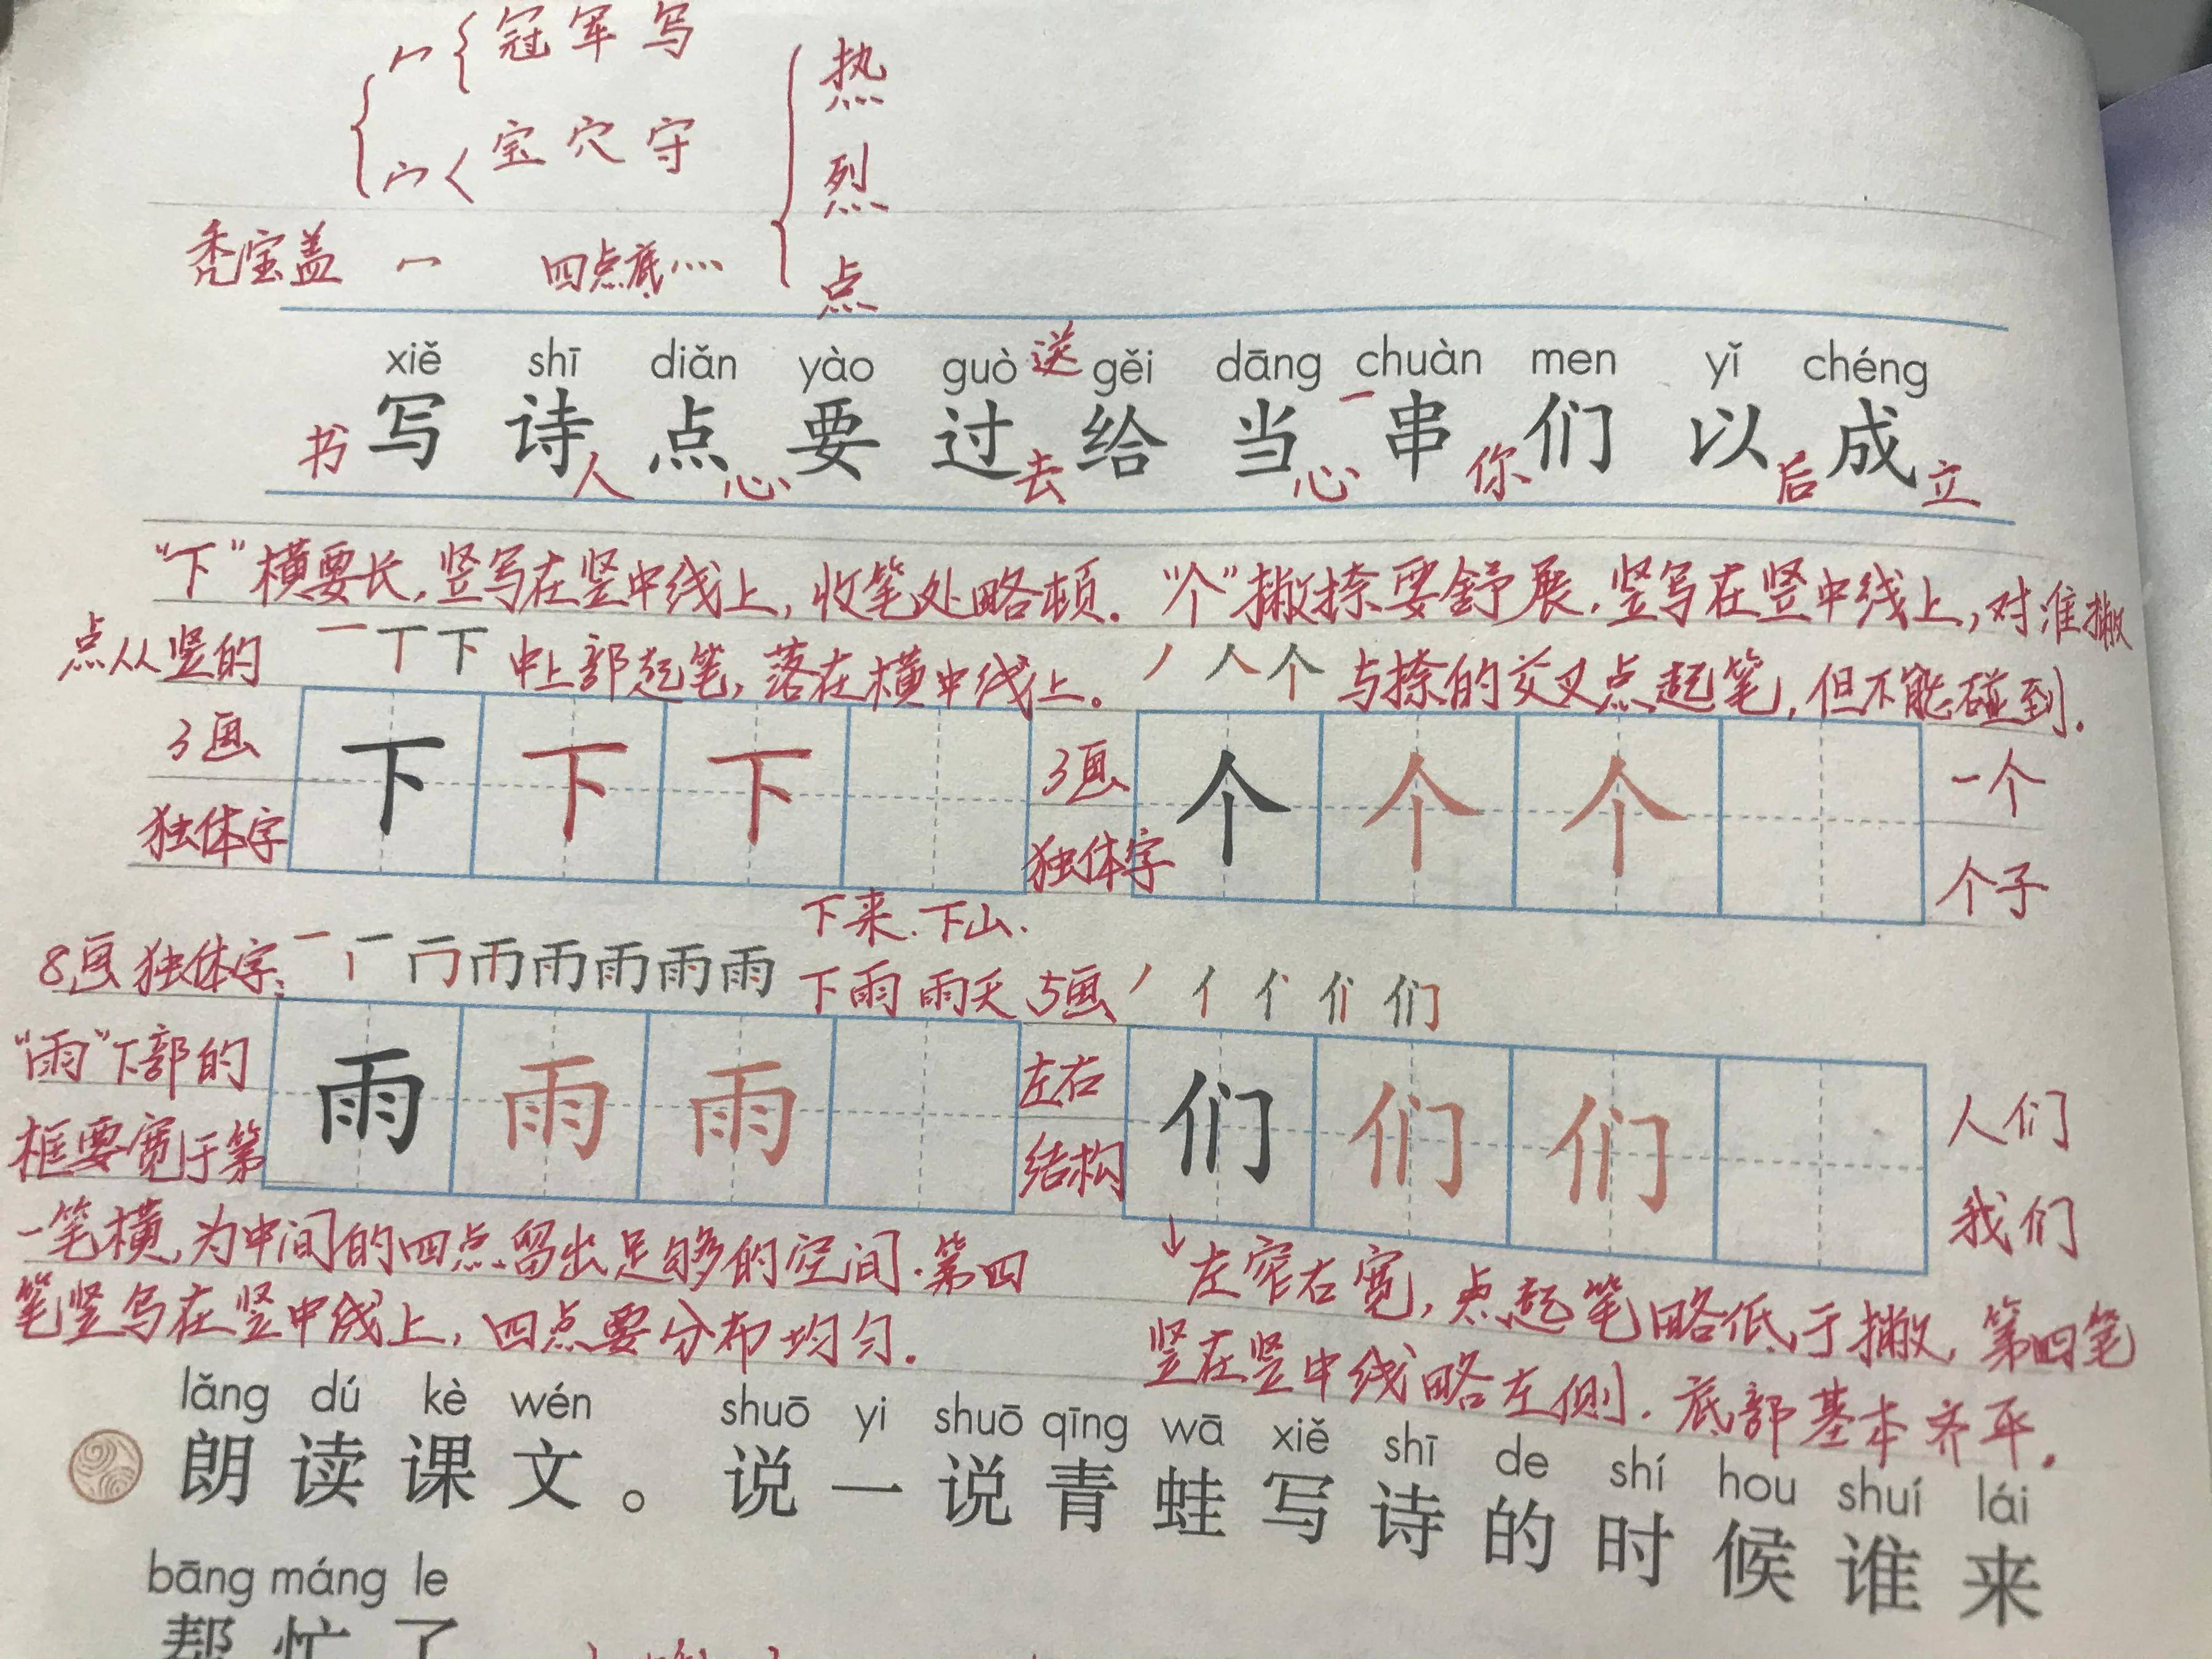 冖 冠 军 写
宀 宝 穴 守
热
烈
点
秃宝盖 冖 四点底 灬
xiě shī diǎn yào guò 送 gěi dāng chuàn men yǐ chéng
书 写 诗 人 点 心 要 过 去 给 当 心 一 串 你 们 以 后 成 立
“下”横要长,竖写在竖中线上,收笔处略顿.
点从竖的 一 丅 下 中上部起笔,落在横中线上。
“个”撇捺要舒展.竖写在竖中线上,对准撇
丿 人 个 与捺的交叉点起笔,但不能碰到.
3画 下 下 下
独体字
3画 个 个 个 一个
独体字 个子
下来.下山.
8画 独体字: 雨 下雨 雨天
5画 丿 亻 们
“雨”下部的 雨 雨 雨
框要宽于第
一笔横,为中间的四点留出足够的空间.第四
笔竖写在竖中线上,四点要分布均匀.
左右 们 们 们 人们
结构 我们
↓左窄右宽,点起笔略低于撇,第四笔
竖在竖中线略左侧.底部基本齐平.
lǎng dú kè wén shuō yi shuō qīng wā xiě shī de shí hou shuí lái
朗 读 课 文 。 说 一 说 青 蛙 写 诗 的 时 候 谁 来
bāng máng le
帮 忙 了